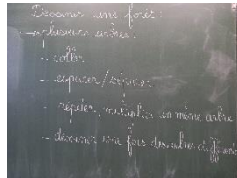 Dessiner une forêt :
→ plusieurs arbres :
- coller
- espacer /
- répéter, multiplier un même arbre
- dessiner une fois des arbres différents